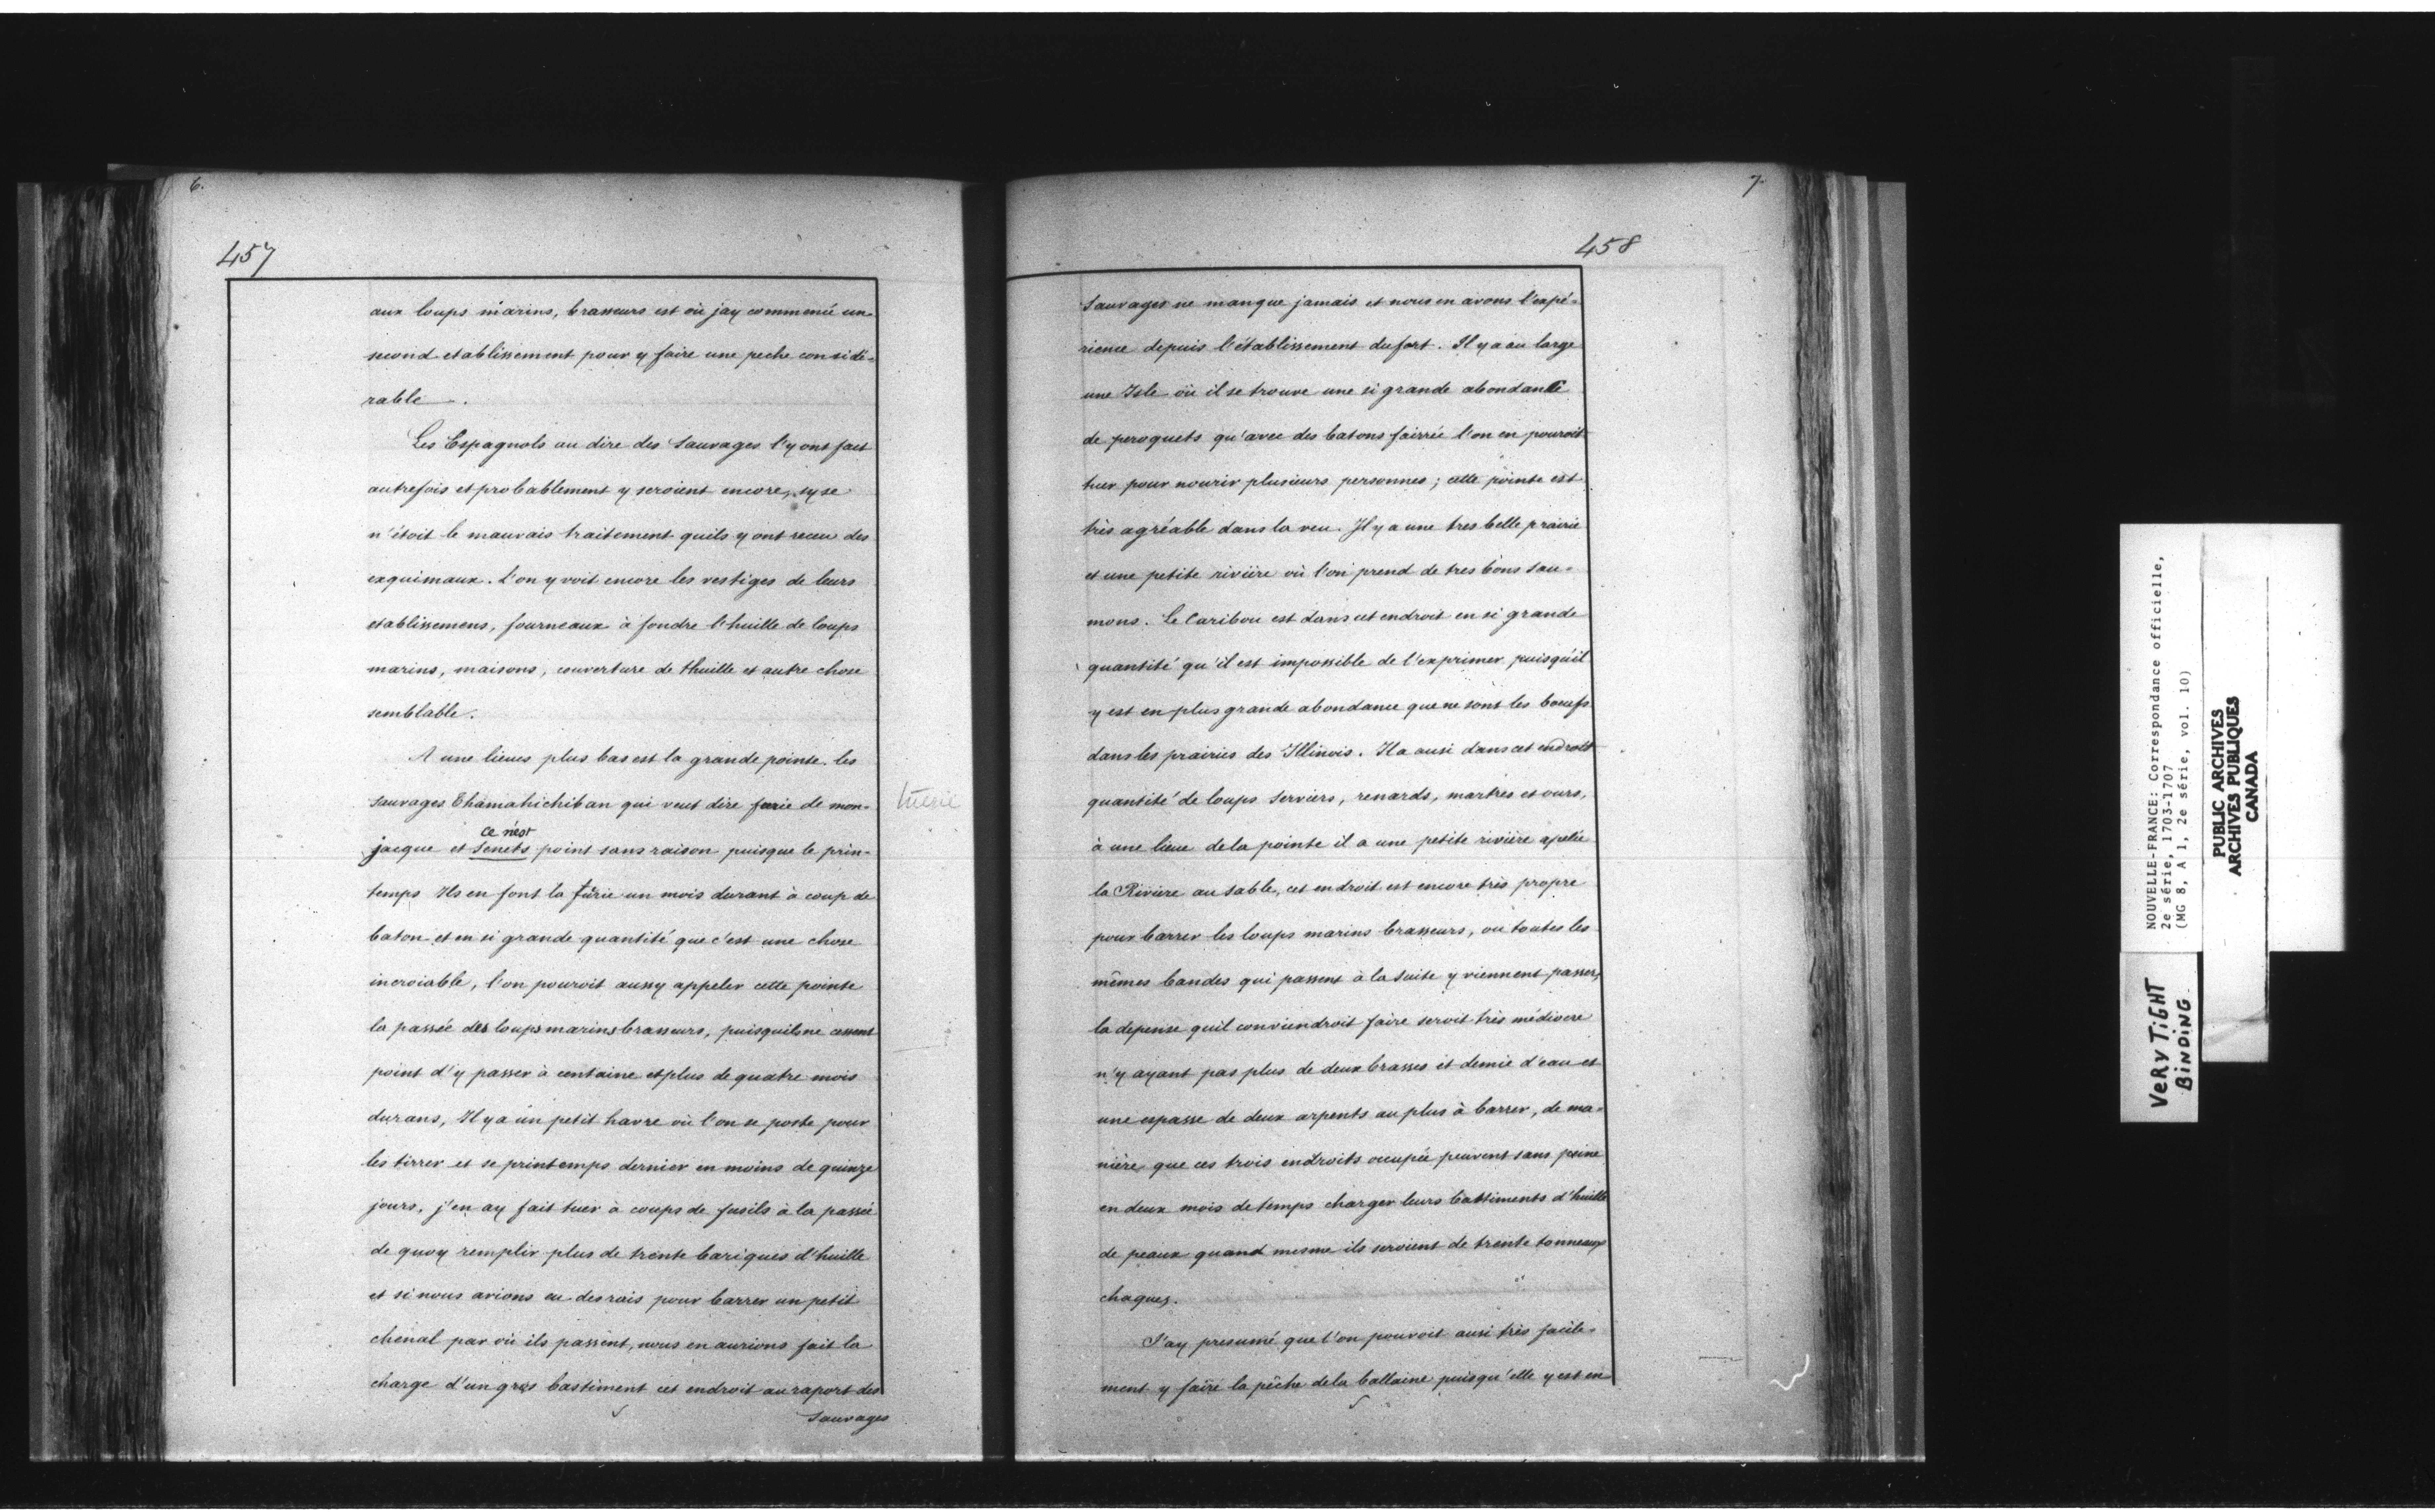 6.
457
aux loups marins, brasseurs est où jay commencé un
second etablissement pour y faire une peche considé-
rable.
Les Espagnols au dire des Sauvages l'y ont fait
autrefois et probablement y seroient encore, sy se
n'étoit le mauvais traitement quils y ont receu des
exquimaux. L'on y voit encore les vestiges de leurs
etablissemens, fourneaux à fondre l'huille de loups
marins, maisons, couverture de thuille et autre chose
semblable.
A une lieues plus bas est la grande pointe. les
sauvages Thamahichiban qui veut dire furie de mon-
tuerie
ce n'est
jacque et Senets point sans raison puisque le prin-
temps Ils en font la furie un mois durant à coup de
baton et en si grande quantité que c'est une chose
incroiable, l'on pouroit aussy appeler cette pointe
la passée des loups marins brasseurs, puisquils ne cessent
point d'y passer à centaine et plus de quatre mois
durans, Il y a un petit havre où l'on se poste pour
les tirrer et se printemps dernier en moins de quinze
jours, j'en ay fait tuer à coups de fusils à la passée
de quoy remplir plus de trente bariques d'huille
et si nous avions eu des rais pour barrer un petit
chenal par où ils passent, nous en aurions fait la
charge d'un gros bastiment cet endroit au raport des
Sauvages
7.
458
Sauvages ne manque jamais et nous en avons l'expé-
rience depuis l'établissement du fort. Il y a au large
une Isle où il se trouve une si grande abondance
de peroquets qu'avec des batons fairrée l'on en pouroit
tuer pour nourir plusieurs personnes; cette pointe est
très agréable dans la veu. Il y a une tres belle prairie
et une petite rivière où l'on prend de tres bons sau-
mons. Le Caribou est dans cet endroit en si grande
quantité qu'il est impossible de l'exprimer puisqu'il
y est en plus grande abondance que ne sont les boeufs
dans les prairies des Illinois. Il a ausi dans cet endroit
quantité de loups Serviers, renards, martres et ours,
à une lieue de la pointe il a une petite rivière apelée
la Rivière au sable, cet endroit est encore très propre
pour barrer les loups marins brasseurs, ou toutes les
mêmes bandes qui passent à la suite y viennent passer,
la depense quil conviendroit faire seroit très médiocre
n'y ayant pas plus de deux brasses et demie d'eau et
une espasse de deux arpents au plus à barrer, de ma-
nière que ces trois endroits occupée peuvent sans peine
en deux mois de temps charger leurs battiments d'huille
de peaux quand mesme ils seroient de trente tonneaux
chaques.
J'ay presumé que l'on pouvoit ausi très facile-
ment y faire la pêche de la ballaine puisqu'elle y est en
NOUVELLE-FRANCE: Correspondance officielle,
2e série, 1703-1707
(MG 8, A 1, 2e série, vol. 10)
PUBLIC ARCHIVES
ARCHIVES PUBLIQUES
CANADA
VERY TIGHT
BINDING